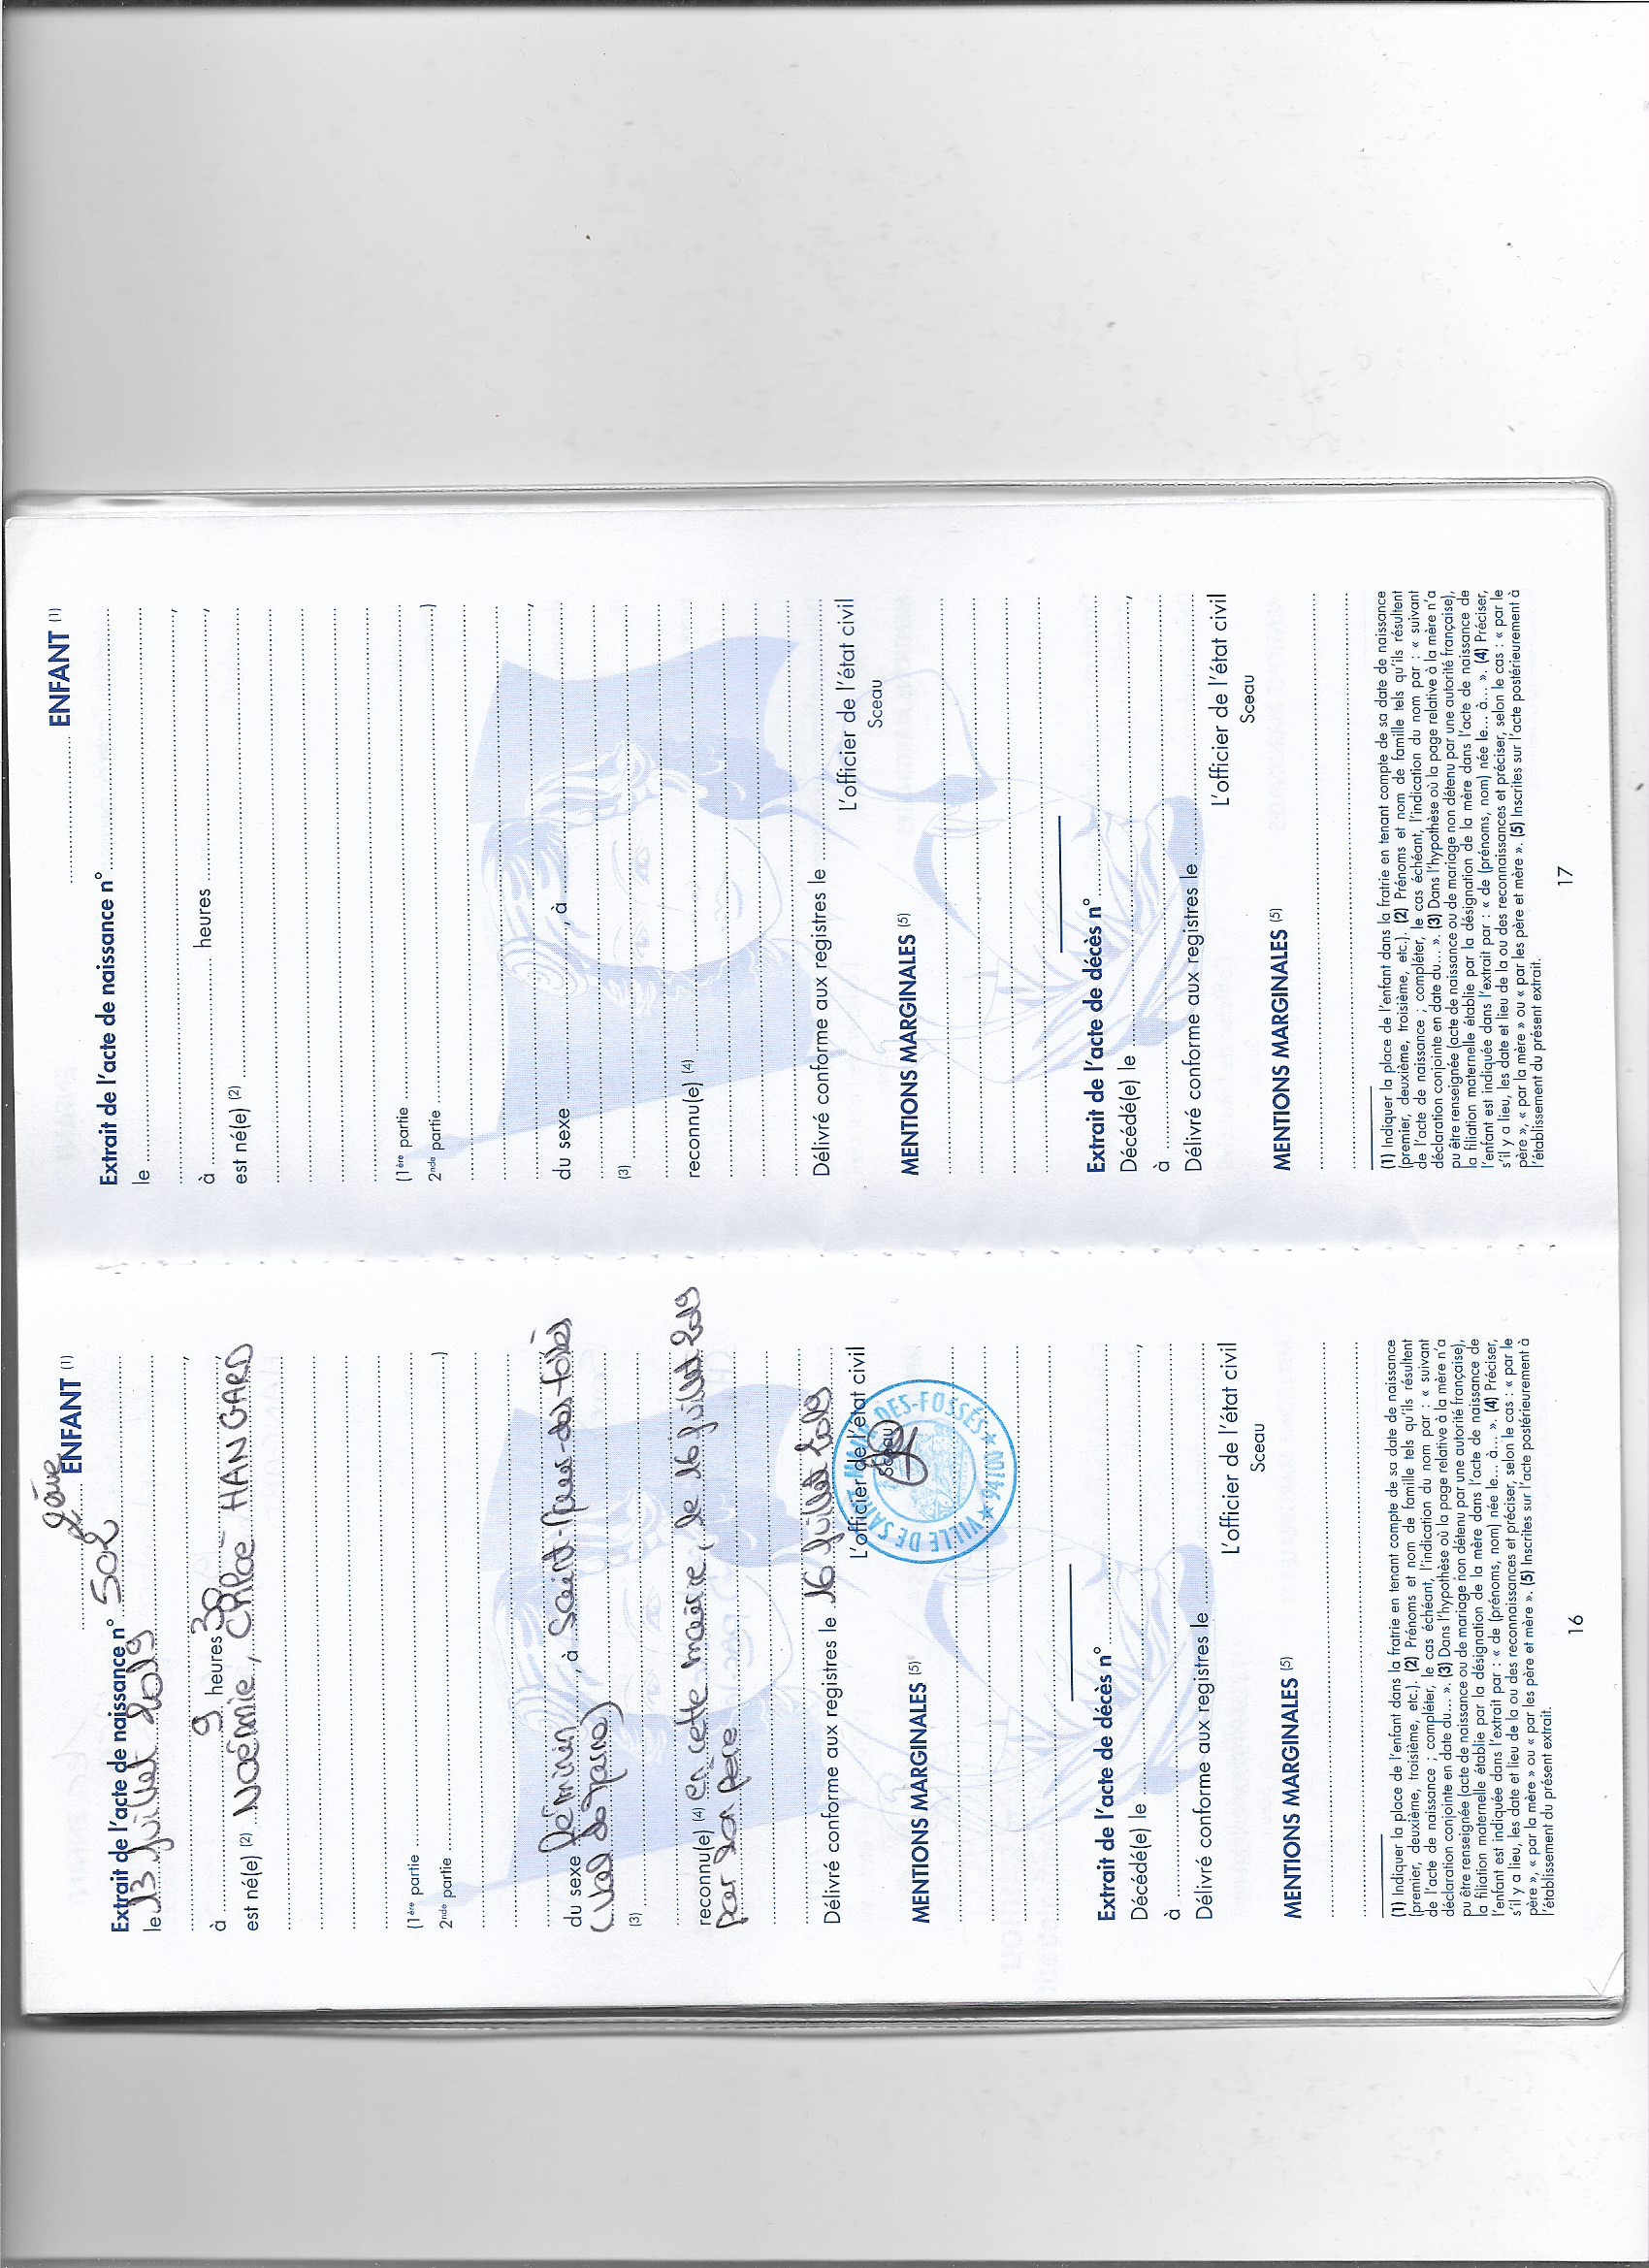 2ème
ENFANT (1)
Extrait de l'acte de naissance n° 502
le 13 juillet 2019
à 9 heures 30,
est né(e) (2) Noémie, Chloé HANGARD
(1ère partie
2nde partie )
du sexe féminin, à Saint-Maur-des-Fossés
(Val de Marne)
(3)
reconnu(e) (4) en cette mairie, le 16 juillet 2019
par son père
Délivré conforme aux registres le 16 juillet 2019
L'officier de l'état civil
Sceau
VILLE DE SAINT MAUR-DES-FOSSÉS ★ 94100 ★
MENTIONS MARGINALES (5)
Extrait de l'acte de décès n°
Décédé(e) le ,
à
Délivré conforme aux registres le
L'officier de l'état civil
Sceau
MENTIONS MARGINALES (5)
(1) Indiquer la place de l'enfant dans la fratrie en tenant compte de sa date de naissance
(premier, deuxième, troisième, etc.). (2) Prénoms et nom de famille tels qu'ils résultent
de l'acte de naissance ; compléter, le cas échéant, l'indication du nom par : « suivant
déclaration conjointe en date du... ». (3) Dans l'hypothèse où la page relative à la mère n'a
pu être renseignée (acte de naissance ou de mariage non détenu par une autorité française),
la filiation maternelle établie par la désignation de la mère dans l'acte de naissance de
l'enfant est indiquée dans l'extrait par : « de (prénoms, nom) née le... à... ». (4) Préciser,
s'il y a lieu, les date et lieu de la ou des reconnaissances et préciser, selon le cas : « par le
père », « par la mère » ou « par les père et mère ». (5) Inscrites sur l'acte postérieurement à
l'établissement du présent extrait.
16
ENFANT (1)
Extrait de l'acte de naissance n°
le
,
à heures ,
est né(e) (2)
(1ère partie
2nde partie )
,
du sexe , à
(3)
reconnu(e) (4)
Délivré conforme aux registres le
L'officier de l'état civil
Sceau
MENTIONS MARGINALES (5)
Extrait de l'acte de décès n°
Décédé(e) le ,
à
Délivré conforme aux registres le
L'officier de l'état civil
Sceau
MENTIONS MARGINALES (5)
(1) Indiquer la place de l'enfant dans la fratrie en tenant compte de sa date de naissance
(premier, deuxième, troisième, etc.). (2) Prénoms et nom de famille tels qu'ils résultent
de l'acte de naissance ; compléter, le cas échéant, l'indication du nom par : « suivant
déclaration conjointe en date du... ». (3) Dans l'hypothèse où la page relative à la mère n'a
pu être renseignée (acte de naissance ou de mariage non détenu par une autorité française),
la filiation maternelle établie par la désignation de la mère dans l'acte de naissance de
l'enfant est indiquée dans l'extrait par : « de (prénoms, nom) née le... à... ». (4) Préciser,
s'il y a lieu, les date et lieu de la ou des reconnaissances et préciser, selon le cas : « par le
père », « par la mère » ou « par les père et mère ». (5) Inscrites sur l'acte postérieurement à
l'établissement du présent extrait.
17